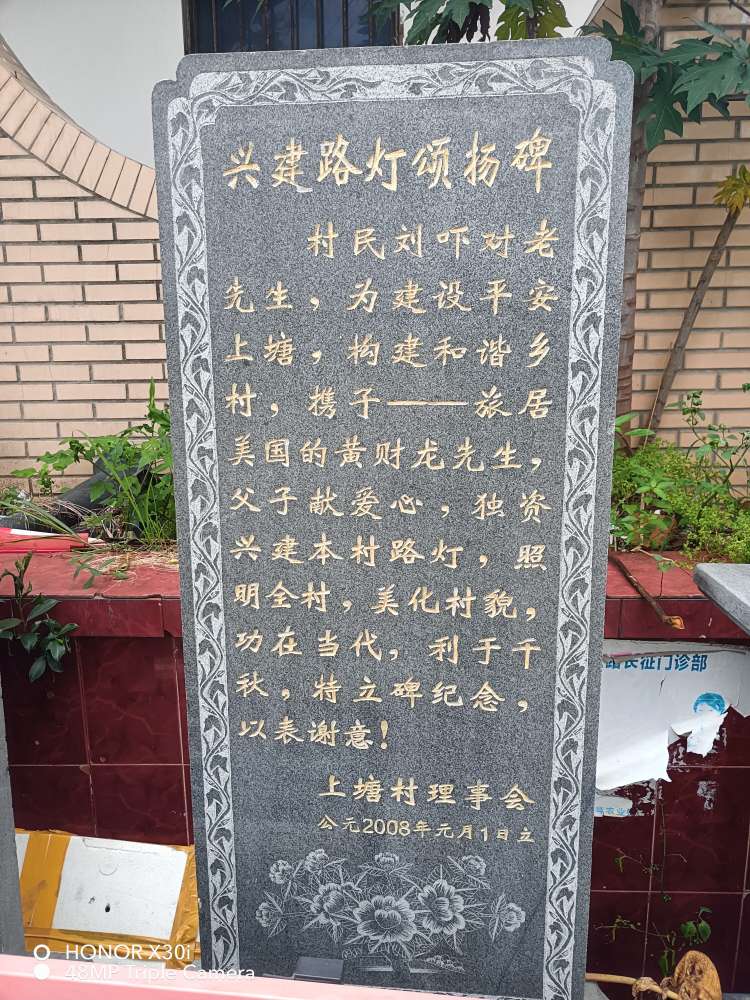 兴建路灯颂扬碑
村民刘吓对老
先生，为建设平安
上塘，构建和谐乡
村，携子——旅居
美国的黄财龙先生，
父子献爱心，独资
兴建本村路灯，照
明全村，美化村貌，
功在当代，利于千
秋，特立碑纪念，
以表谢意！
上塘村理事会
公元2008年元月1日立
长征门诊部
HONOR X30i
48MP Triple Camera